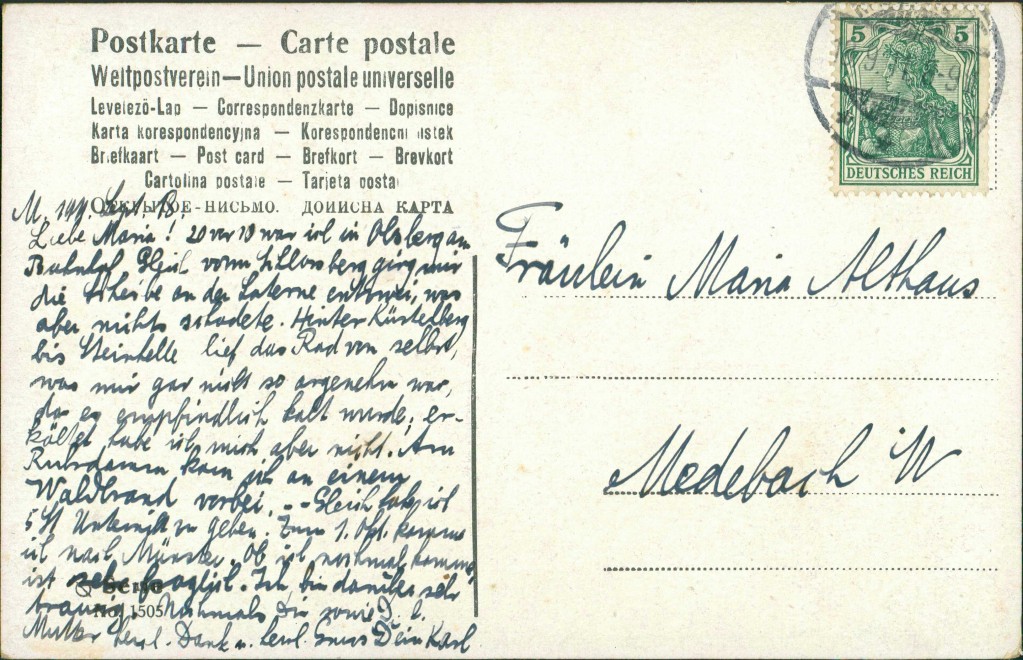 Postkarte — Carte postale
Weltpostverein — Union postale universelle
Levelező-Lap — Correspondenzkarte — Dopisnice
Karta korespondencyjna — Korespondencni listek
Briefkaart — Post card — Brefkort — Brevkort
Cartolina postale — Tarjeta postal
ОТКРЫТОЕ-ПИСЬМО. ДОПИСНА КАРТА
5 5
DEUTSCHES REICH
M. Sept.
Liebe Maria! 20 vor 10 war ich in Olsberg am
Bahnhof. vorm Schlossberg ging mir
die Scheibe an der Laterne entzwei, was
aber nichts schadete. Hinter Küstelberg
bis Steinhelle lief das Rad von selbst,
was mir gar nicht so angenehm war,
da es empfindlich kalt wurde; er-
kältet habe ich mich aber nicht. Am
Ruhrdamm kam ich an einem
Waldbrand vorbei. - - Gleich habe ich
5 St. Unterricht zu geben. Zum 1. Okt. komme
ich nach Münster. Ob ich nochmal komme,
ist sehr fraglich. Ich bin darüber sehr
traurig. Nochmals Dir sowie D. l.
Mutter herzl. Dank u. herzl. Gruss Dein Karl
No. 1505
Fräulein Maria Althaus
Medebach i/W